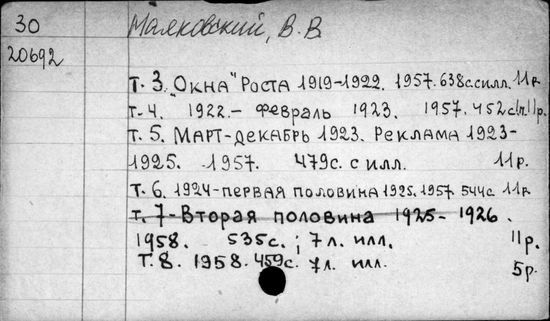 30 Маяковский, В. В
20692
Т. 3. "Окна" Роста 1919-1922. 1957. 638с. с илл. 11р.
т. 4. 1922. - февраль 1923. 1957. 452с. 11р.
т. 5. Март-декабрь 1923. Реклама 1923-
1925. 1957. 479с. с илл. 11р.
т. 6. 1924-первая половина 1925. 1957. 544с. 11р.
т. 7-Вторая половина 1925-1926.
1958. 535с. ; 7л. илл. 11р.
Т. 8. 1958. 459с. 7л. илл. 5р.